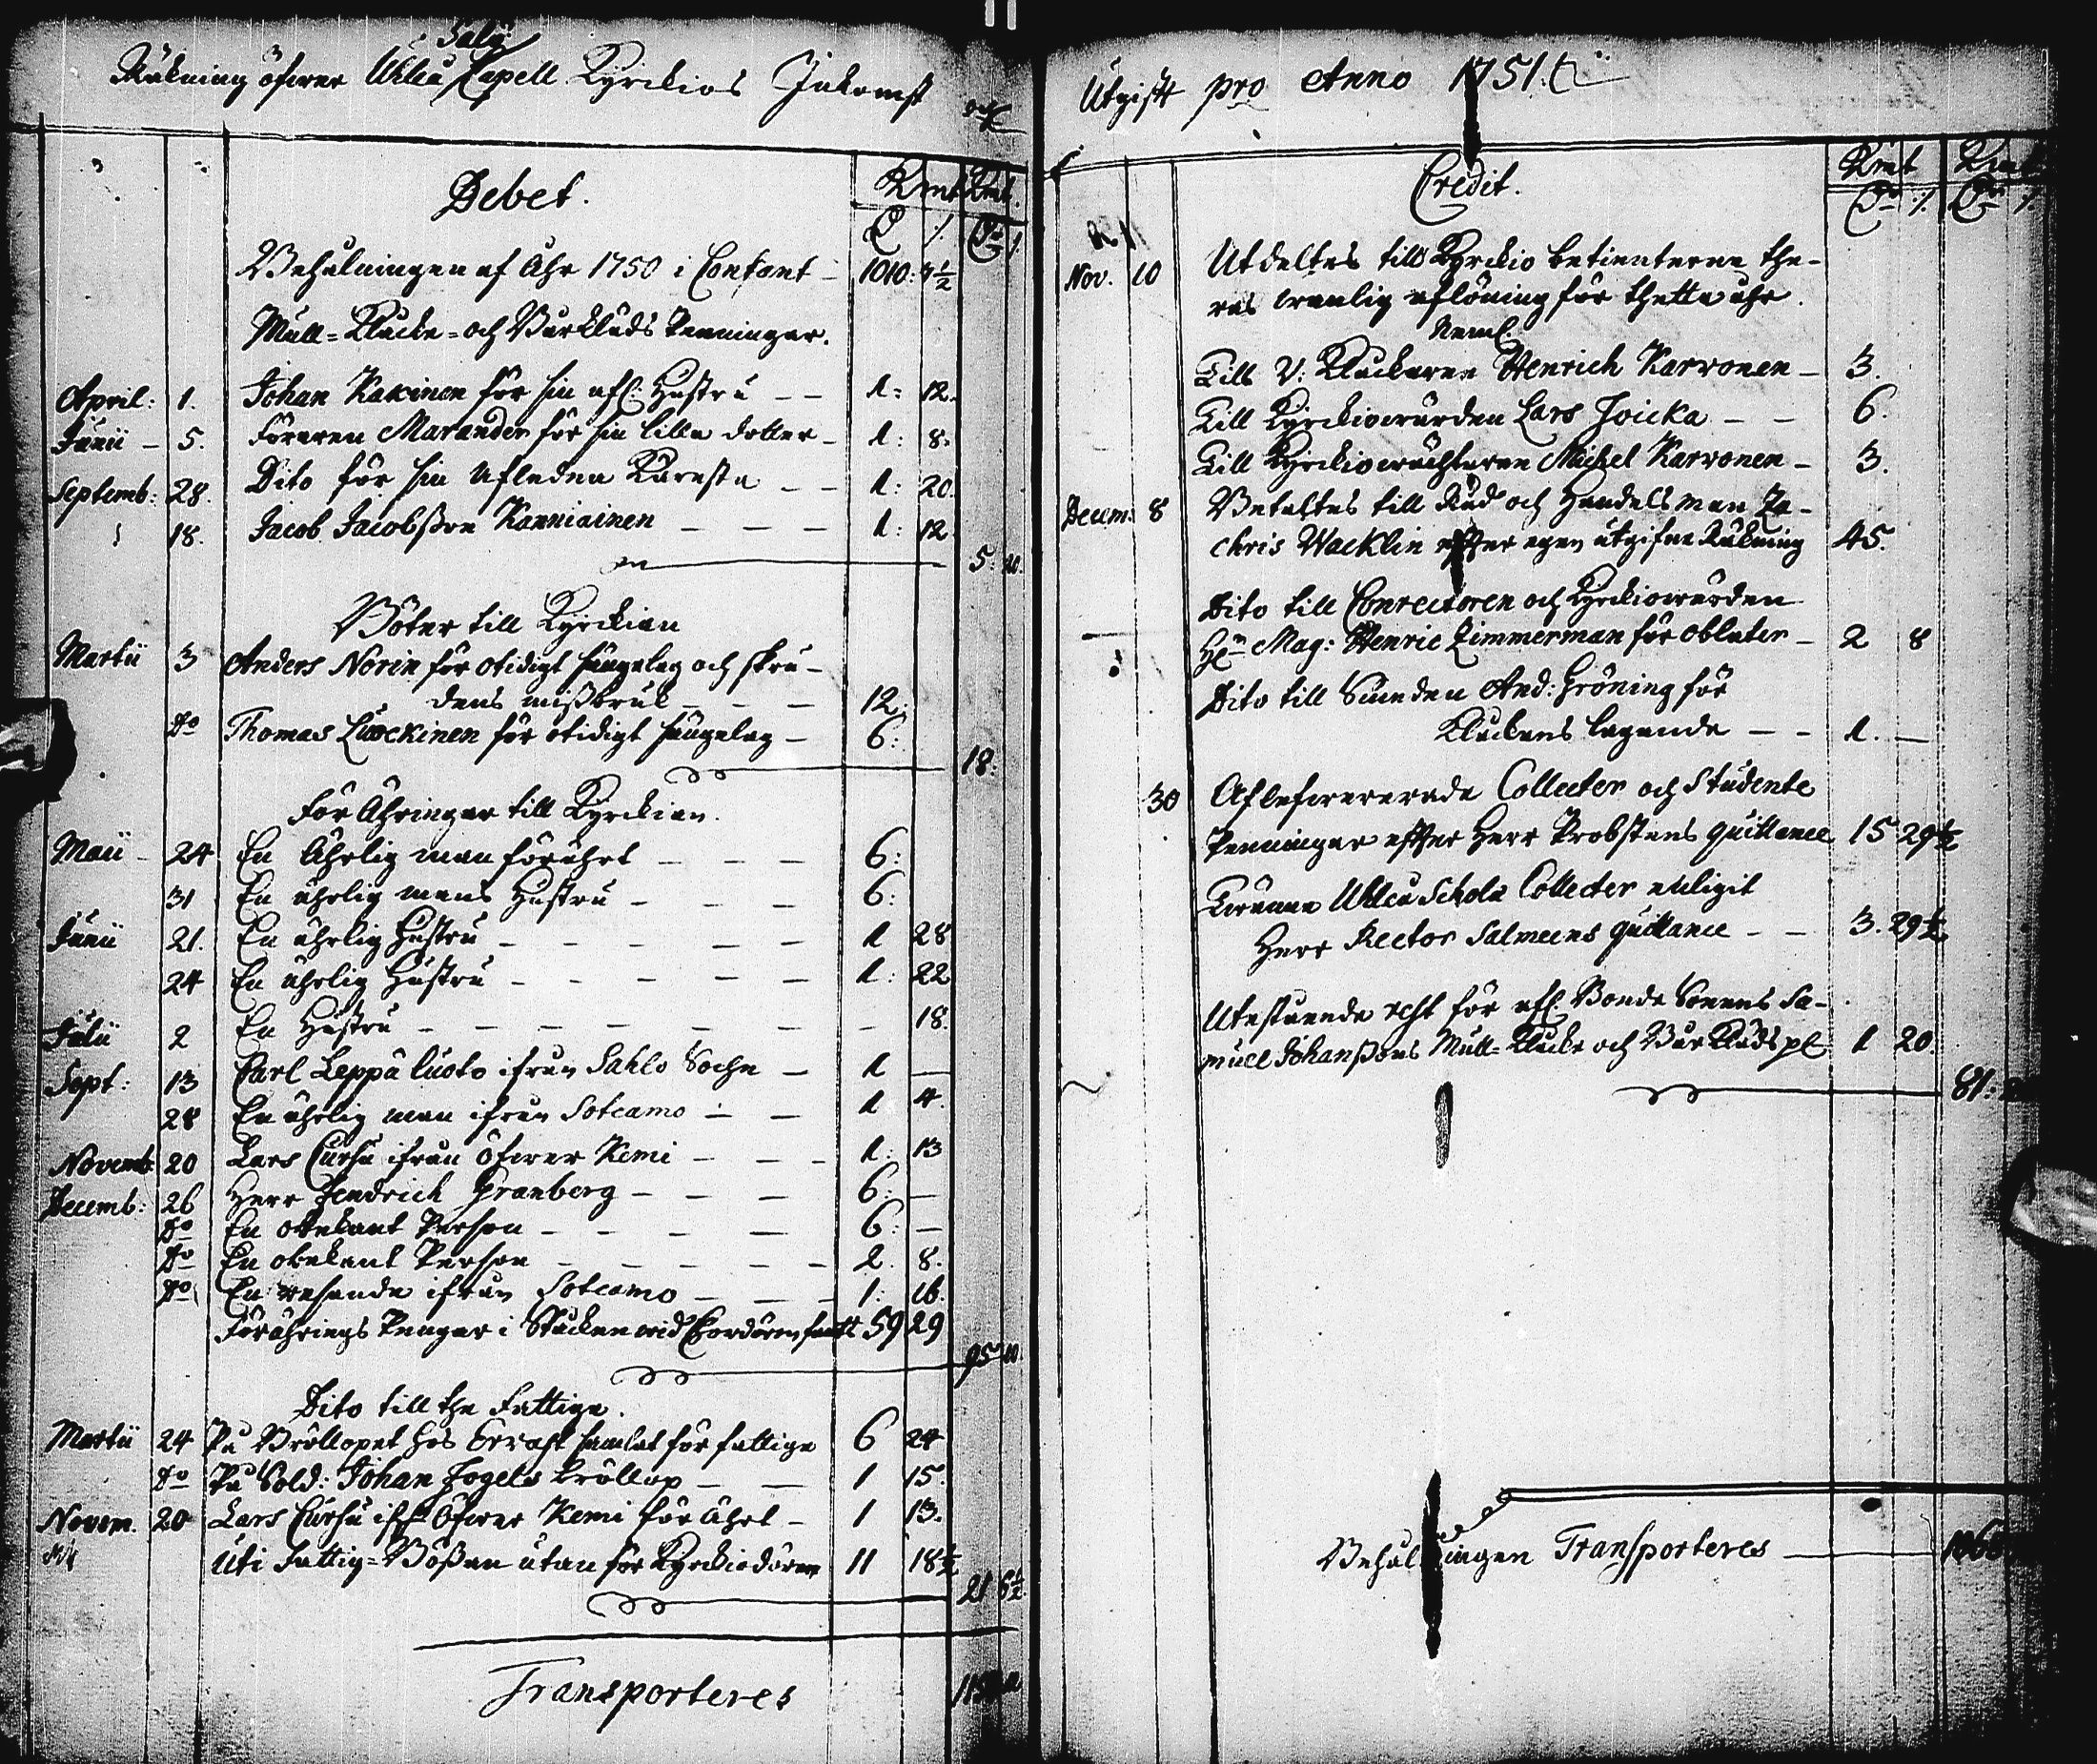 Salu
Räkning öfwer Uhleå Capell Kyrckios Inkomst och
Debet.
Kmt Kmt.
Behålningen af Åhr 1750 i Contant — 1010: 7½
Mull-Klocke- och Bårkläds Penningar.
April: 1. Johan Kakinen för sin afl: Hustru — — 1: 12.
Junii — 5. Föraren Marander för sin lilla dotter — 1: 8.
Septemb: 28. Dito för sin Afledna Käresta — — 1: 20.
18. Jacob Jacobsson Kanniainen — — — 1: 12.
5: 20.
Böter till Kyrckian
Martii 3 Anders Norin för otidigt sängelag och skru-
dens missbruk — — — 12:
Do Thomas Luockinen för otidigt sängelag — 6:
18:
Föräringar till Kyrckian.
Maii — 24 En Ährlig man förährt — — — 6:
31 En ährlig mans Hustru — — — 6:
Junii 21. En ährlig Hustru — — — — — 1 28
24 En ährlig Hustru — — — — — 1: 22
Julii 2 En Hustru — — — — — — — — 18.
Sept: 13 Carl Leppäluoto ifrån Sahlo Sochn — 1 —
28 En ährlig man ifrån Sotcamo — — 1 4.
Novemb: 20 Lars Cursu ifrån Öfwer Kemi — — — 1: 13
Decemb: 26 Herr Hendrich Granberg — — — 6: —
Do En obekant Person — — — — 6: —
Do En obekant Person — — — — — 2. 8.
Do En resande ifrån Sotcamo — — — 1: 16.
Förährings Pengar i Stocken wid Chordören 59 29
95 20.
Dito till the Fattiga.
Martii 24 På Bröllopet hos samlat för fattiga 6 24
Do På Sold: Johan Fogels bröllop — — 1 15.
Novem. 20 Lars Cursu ifr: Öfwer Kemi förährt — 1 13.
Uti Fattig-Bössan utan för Kyrckiodören 11 18½
21 6½
Transporteres
Utgift pro Anno 1751.
Credit.
Kmt Kmt
Nov. 10 Utdeltes till Kyrckio betienterne the-
ras wanlig aflöning för thetta åhr.
Neml.
Till V: Klockaren Henrich Karvonen — 3.
Till Kyrckiowärden Lars Joicka — — 6.
Till Kyrckiowächtaren Michel Karvonen — 3.
Decem: 8 Betaltes till Råd och Handelsman Za-
chris Wacklin efter egen utgifne Räkning 45.
Dito till Conrectoren och Kyrckiowärden
Hr Mag: Henric Zimmerman för oblater — 2 8
Dito till Smeden And: Gröning för
Klockans lagande — — 1. —
30 Aflefwererade Collecter och Studente
Penningar efter Herr Probstens quittance 15 29½
Twänne Uhleå Schola Collecter enligit
Herr Rector Salmeens quittance — — 3. 29½
Utestående rest för afl. Bonde Sonens Sa-
muel Johanssons Mull- Klocke och Bår Kläds pl: 1 20.
81:
Behålningen Transporteres —